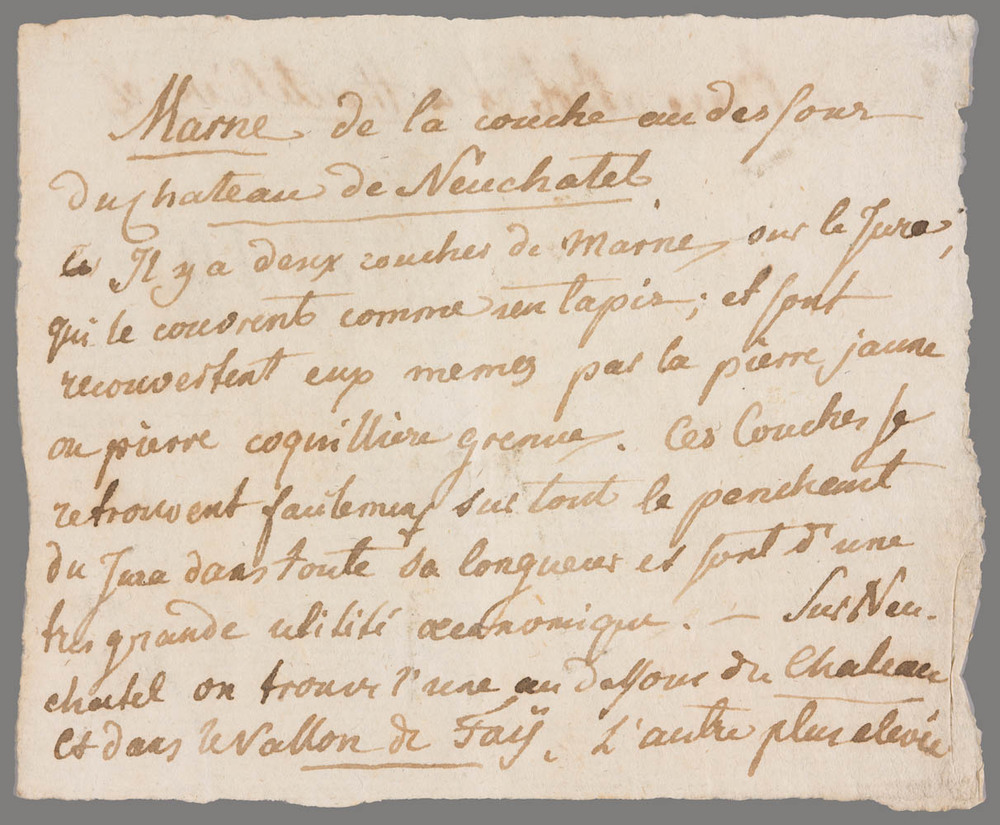 Marne de la couche au des sous
du Chateau de Neuchatel
Il y a deux couches de Marne sur le Jura,
qui le couvrent comme un tapis; et sont
recouvertent eux memes par la pierre jaune
ou pierre coquilliere grenue. Ces Couches se
retrouvent sur tout le penchant
du Jura dans toute sa longueur et sont d'une
tres grande utilité œconomique. — Sur Neu-
chatel on trouve l'une au dessous du Chateau
et dans le Vallon de Faÿ. L'autre plus elevée